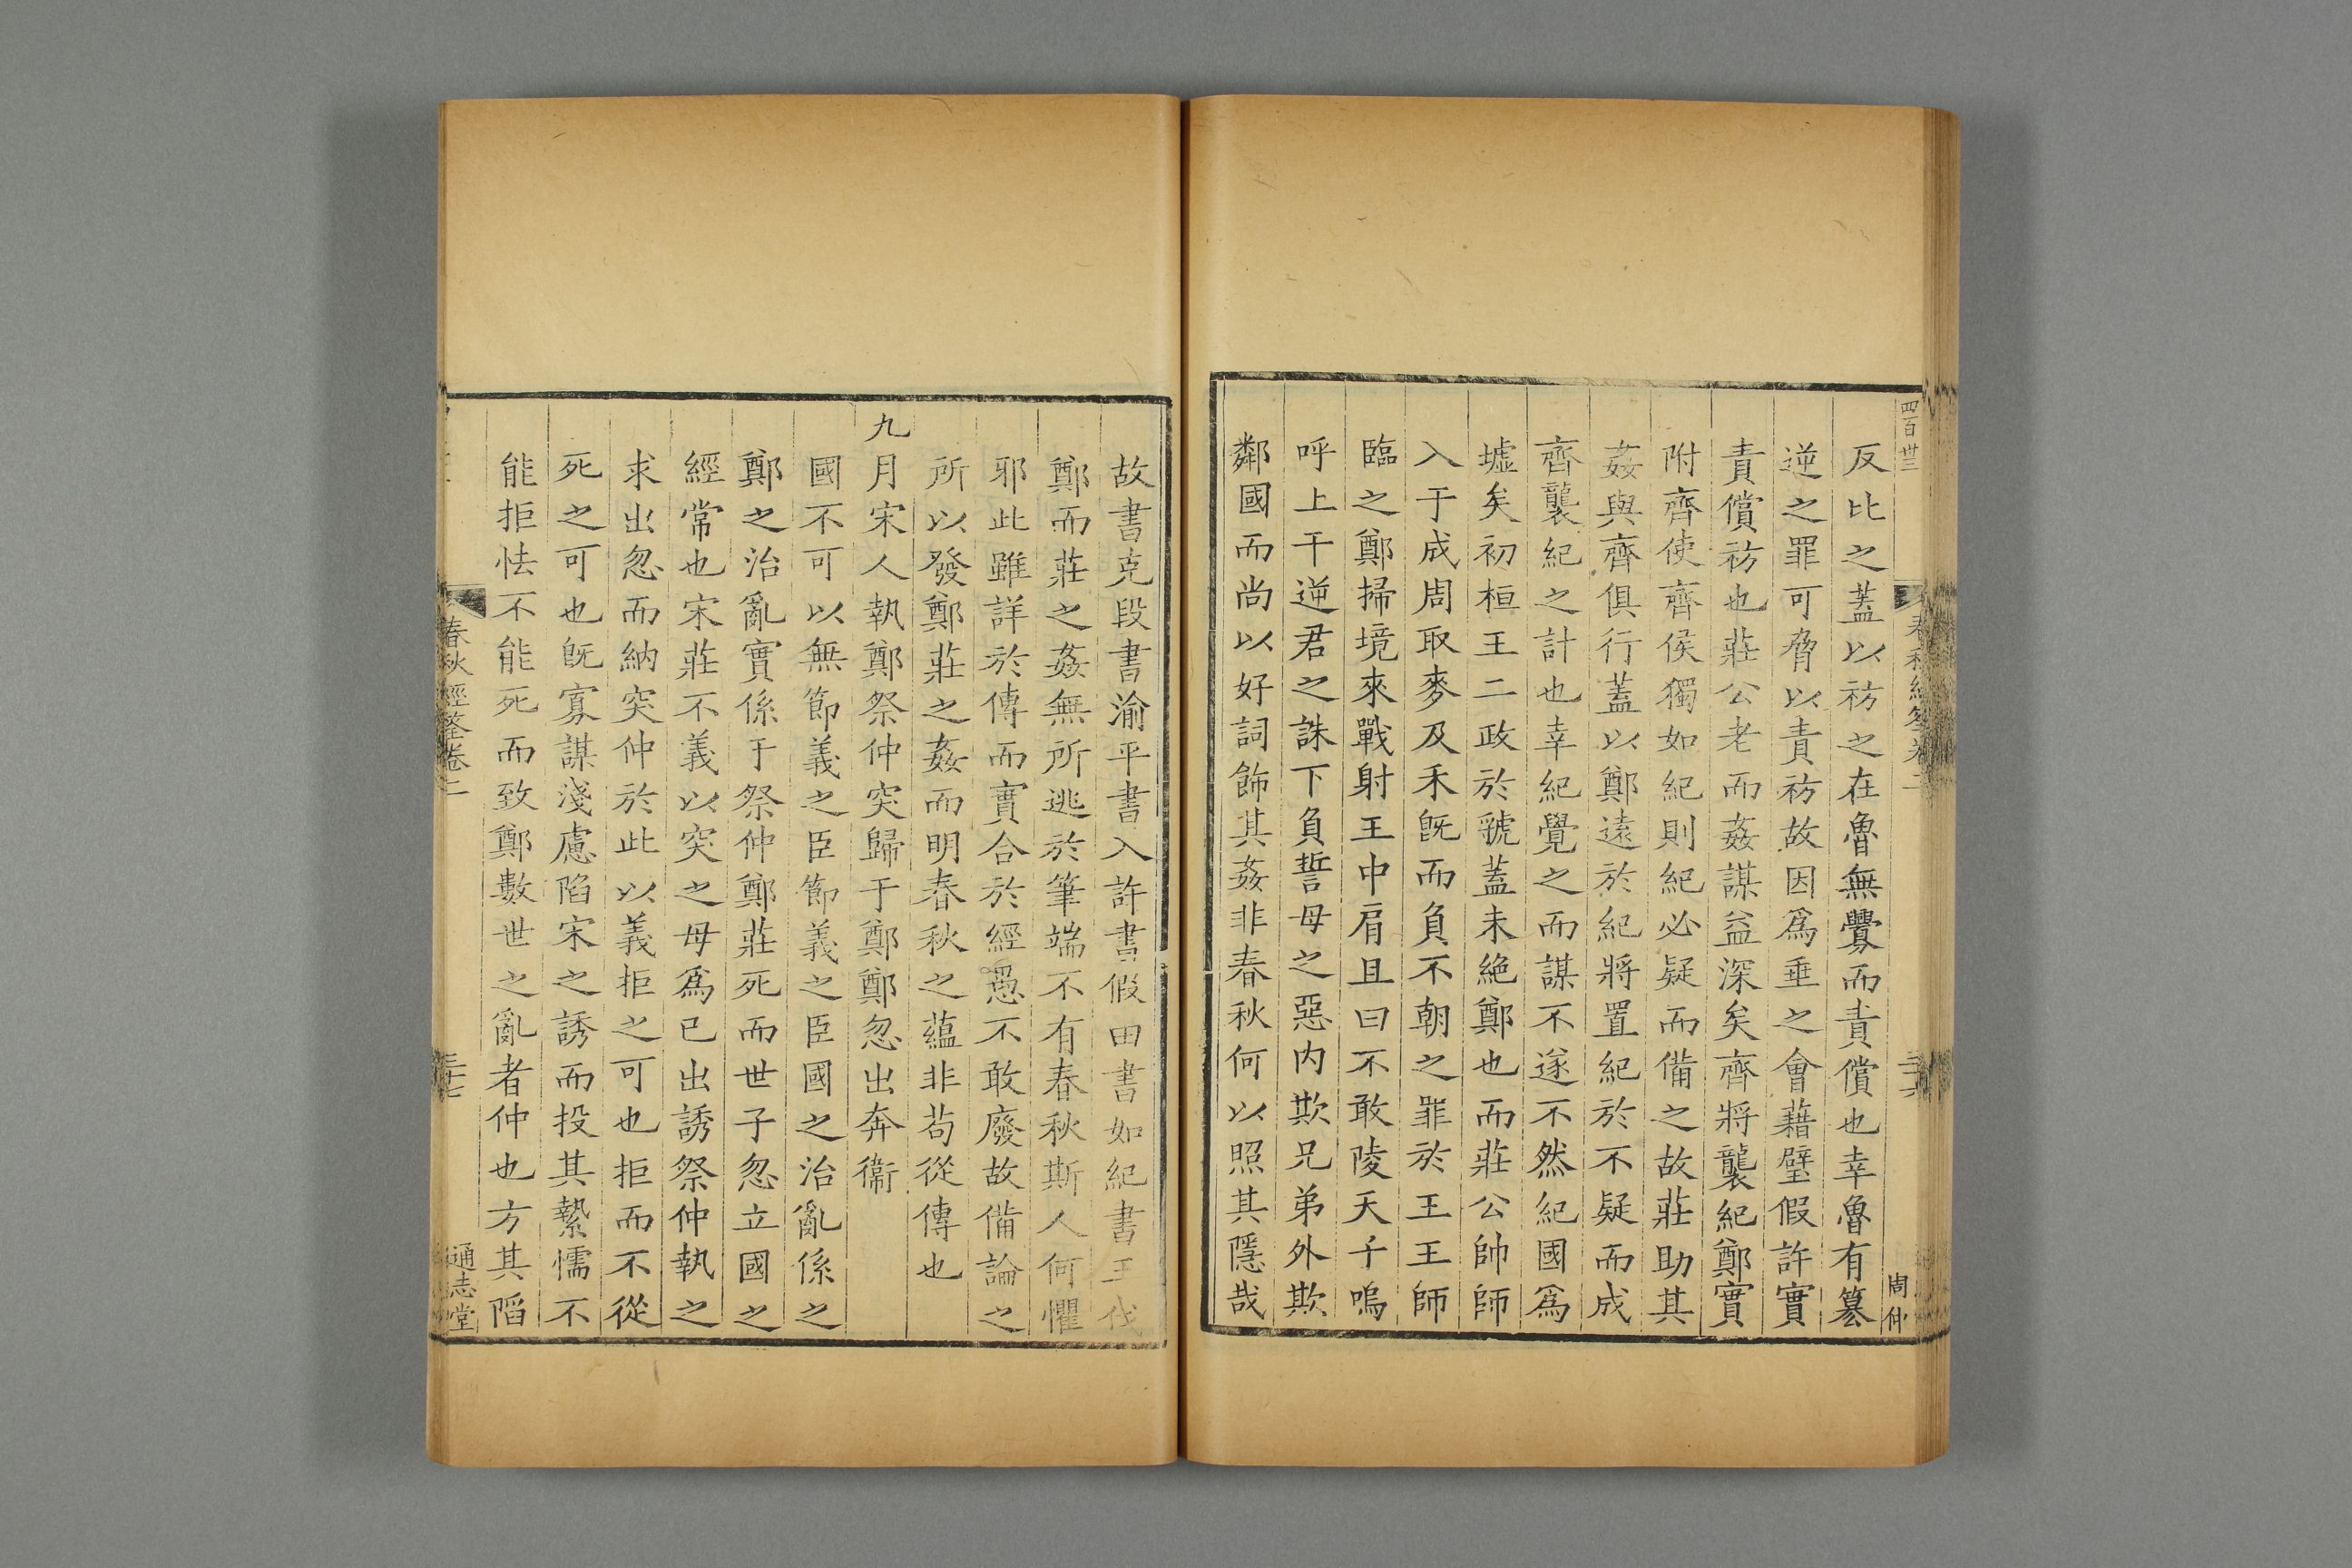 四百廿三
春秋經筌卷二
三六
周仲
反比之蓋以祊之在魯無釁而責償也幸魯有篡
逆之罪可脅以責祊故因爲垂之會藉璧假許實
責償祊也莊公老而姦謀益深矣齊將襲紀鄭實
附齊使齊侯獨如紀則紀必疑而備之故莊助其
姦與齊俱行蓋以鄭遠於紀將置紀於不疑而成
齊襲紀之計也幸紀覺之而謀不遂不然紀國爲
墟矣初桓王二政於虢蓋未絶鄭也而莊公帥師
入于成周取麥及禾旣而負不朝之罪於王王師
臨之鄭掃境來戰射王中肩且曰不敢陵天子嗚
呼上干逆君之誅下負誓母之惡内欺兄弟外欺
鄰國而尚以好詞飾其姦非春秋何以照其隱哉
故書克段書渝平書入許書假田書如紀書王伐
鄭而莊之姦無所逃於筆端不有春秋斯人何懼
邪此雖詳於傳而實合於經愚不敢廢故備論之
所以發鄭莊之姦而明春秋之蘊非苟從傳也
九月宋人執鄭祭仲突歸于鄭鄭忽出奔衞
國不可以無節義之臣節義之臣國之治亂係之
鄭之治亂實係于祭仲鄭莊死而世子忽立國之
經常也宋莊不義以突之母爲已出誘祭仲執之
求出忽而納突仲於此以義拒之可也拒而不從
死之可也旣寡謀淺慮陷宋之誘而投其縶懦不
能拒怯不能死而致鄭數世之亂者仲也方其陷
春秋經筌卷二
三十七
通志堂